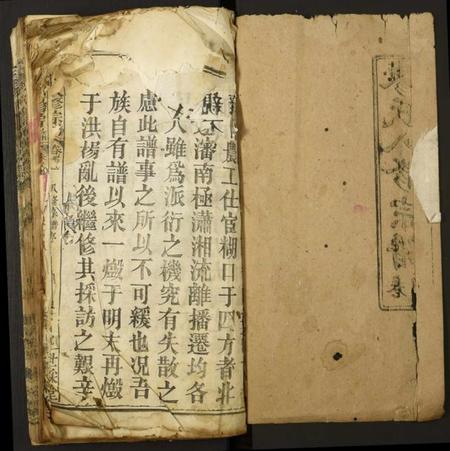 氏八修宗譜卷
農工仕宦糊口于四方者北
瀋南極瀟湘流離播遷均各
人雖爲派衍之機究有失散之
慮此譜事之所以不可緩也況吾
族自有譜以來一燬于明末再燬
于洪楊亂後繼修其採訪之艱辛